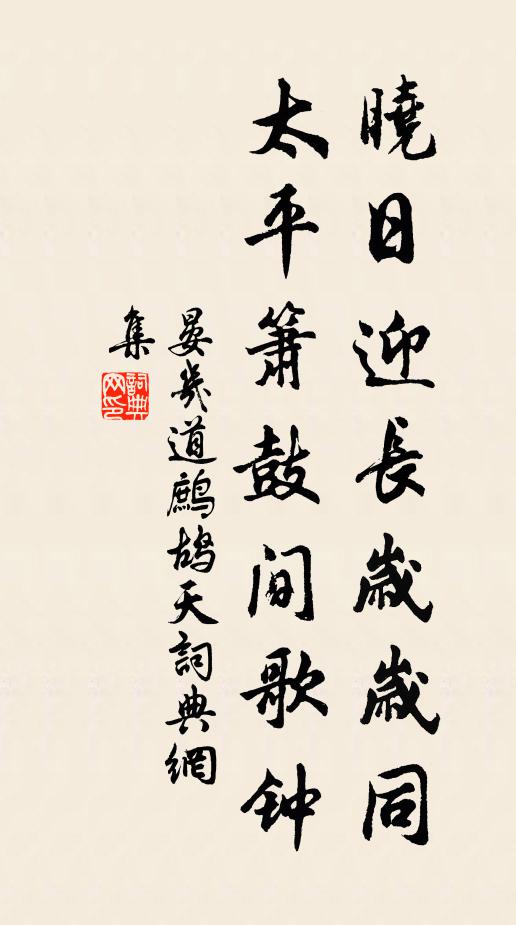 曉日迎長歲歲同
太平簫鼓間歌钟
晏幾道鷓鴣天詞典網
集
詞典
网印